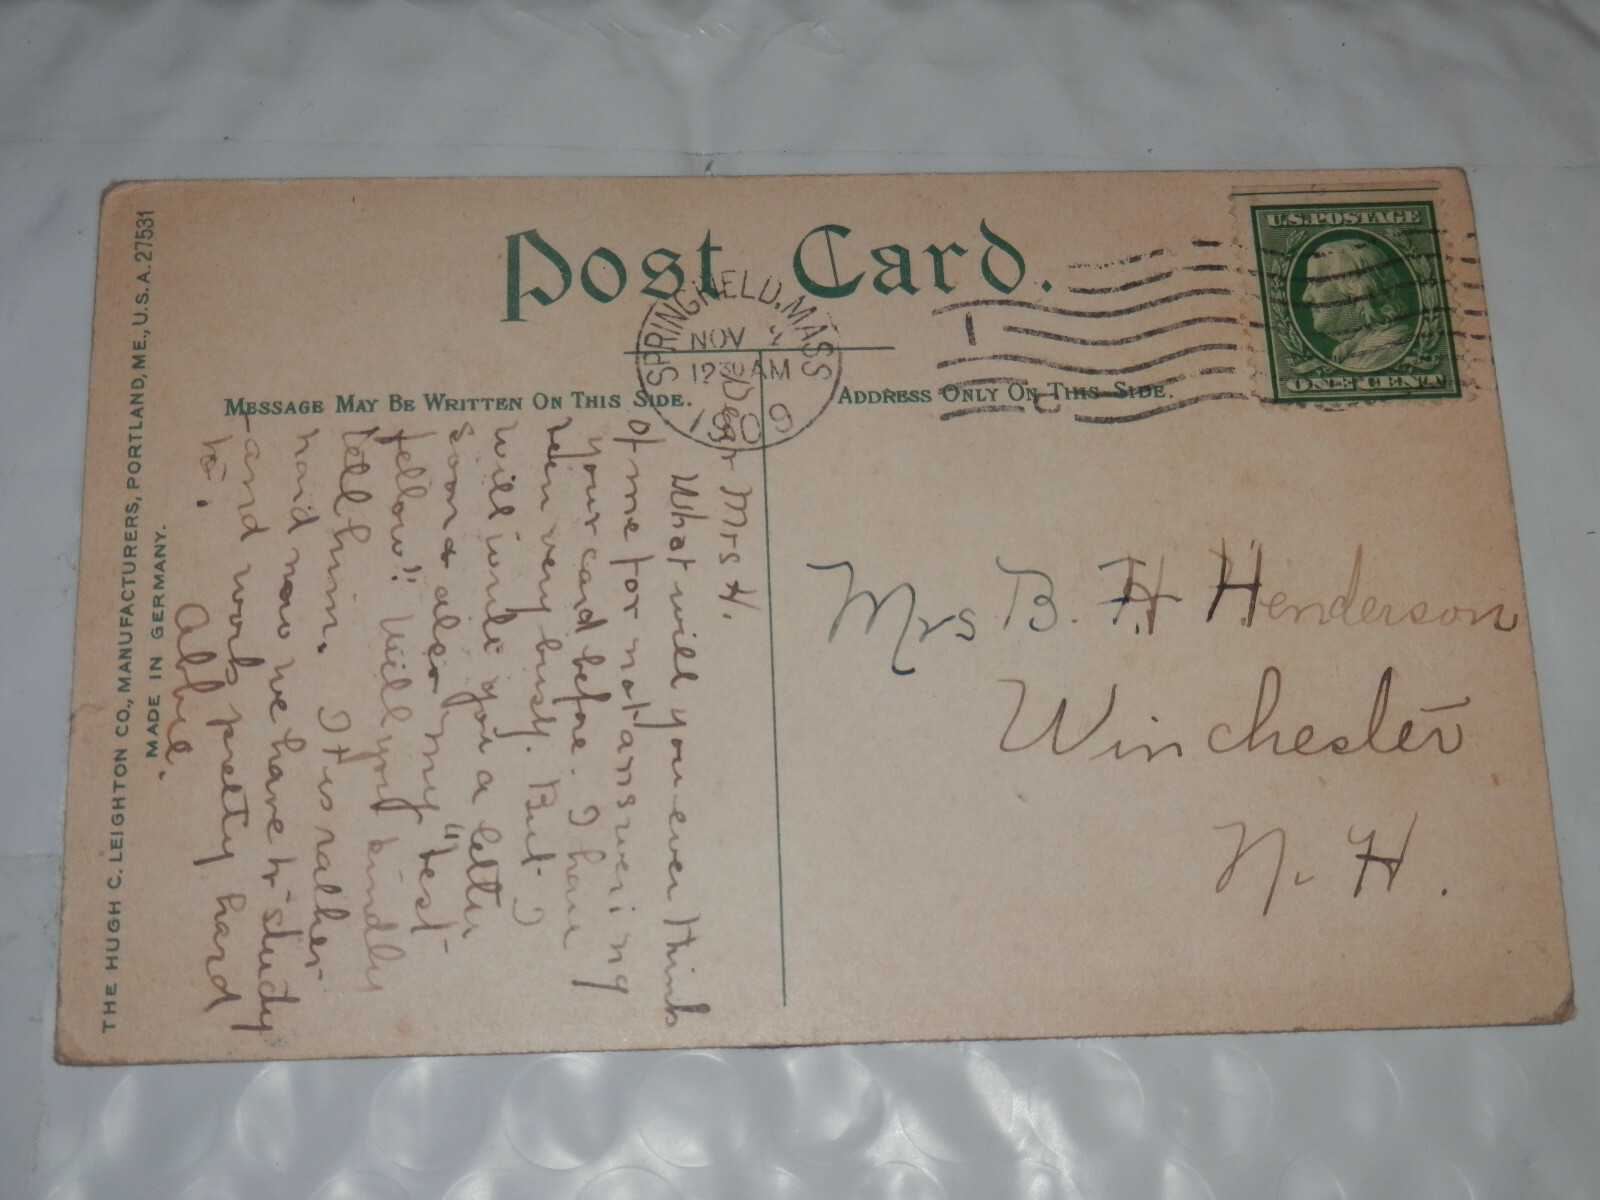 Post Card.
U.S. POSTAGE
ONE CENT
SPRINGFIELD, MASS
NOV
12 30 AM
1909
1
MESSAGE MAY BE WRITTEN ON THIS SIDE.
ADDRESS ONLY ON THIS SIDE.
THE HUGH C. LEIGHTON CO., MANUFACTURERS, PORTLAND, ME., U.S.A. 27531
MADE IN GERMANY.
Dear Mrs H.
What will you ever think
of me for not answering
your card before. I have
been very busy. But I
will write you a letter
soon & also my "best
fellow". Will you kindly
tell him. It is rather
hard now we have to study
and work pretty hard
to.
Abbie.
Mrs B. H Henderson
Winchester
N. H.